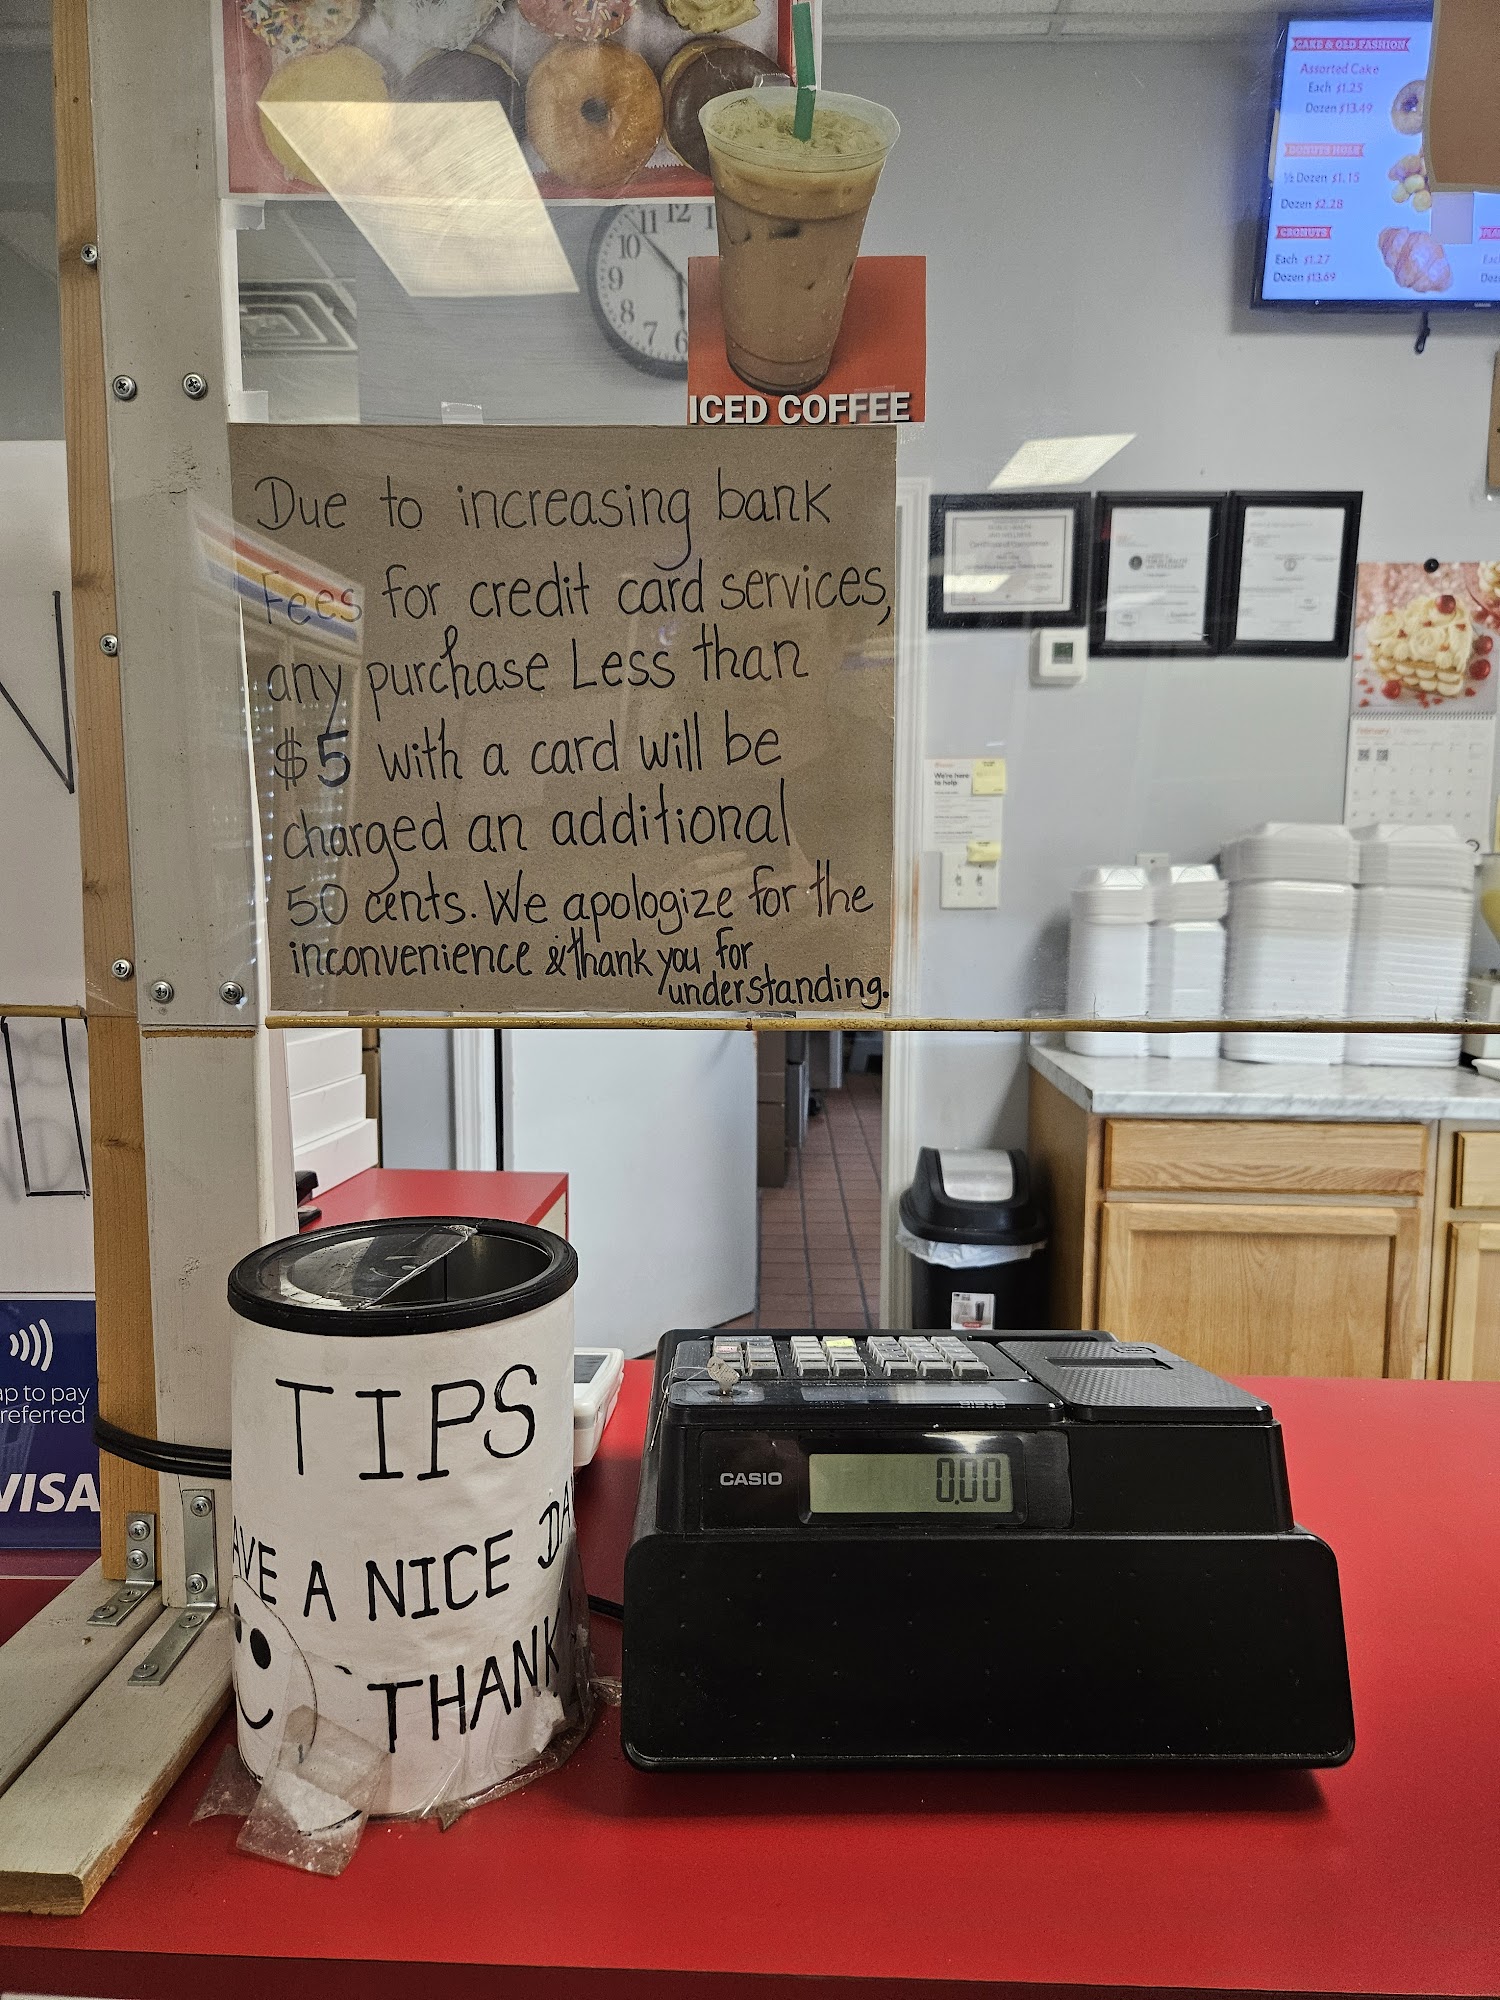 CAKE & OLD FASHION
Assorted Cake
Each $1.25
Dozen $13.49
DONUTS HOLE
½ Dozen $1.15
Dozen $2.28
CRONUTS
Each $1.27
Dozen $13.69
11 12 1
10
9
8
7
6
ICED COFFEE
Due to increasing bank
Fees for credit card services,
any purchase Less than
$5 with a card will be
charged an additional
50 cents. We apologize for the
inconvenience & thank you for
understanding.
We're here
to help
February
ap to pay
referred
VISA
TIPS
AVE A NICE DA
THANK
CASIO
0.00